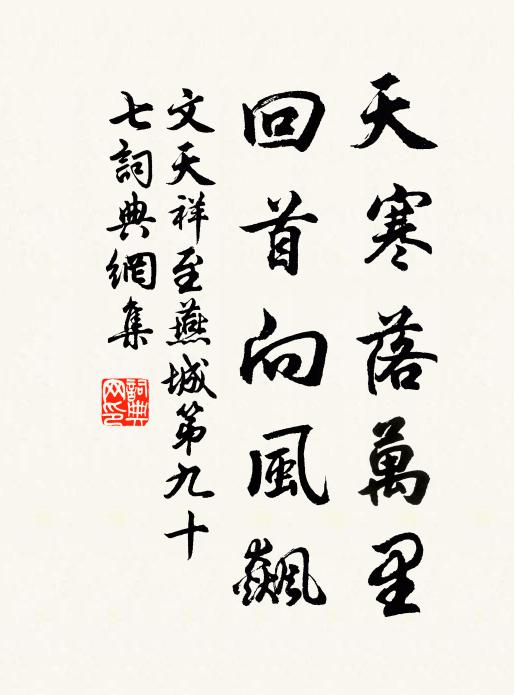 天寒落萬里
回首向風飆
文天祥至燕城第九十
七詞典網集
詞典網印